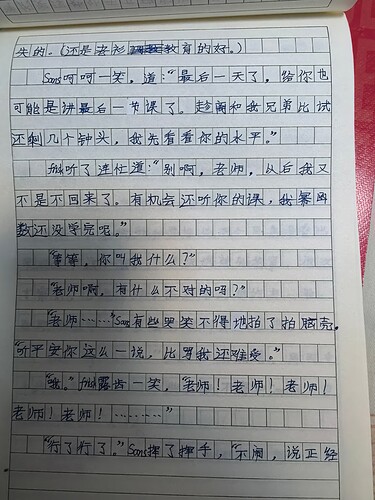 失的。(还是老衫教育的好。)
Sans呵呵一笑，道：“最后一天了，给你也
可能是讲最后一节课了。趁闹和我兄弟比试
还剩几个钟头，我先看看你的水平。”
frisk听了连忙道：“别啊，老师，以后我又
不是不回来了。有机会还听你的课，我幂函
数还没学完呢。”
“等等，你叫我什么？”
“老师啊，有什么不对的吗？”
“老师……”Sans有些哭笑不得地拍了拍脑壳。
“听平安你这么一说，比骂我还难受。”
“哦。”frisk露齿一笑，“老师！老师！老师！
老师！老师！………”
“行了行了。”Sans挥了挥手，“不闹，说正经